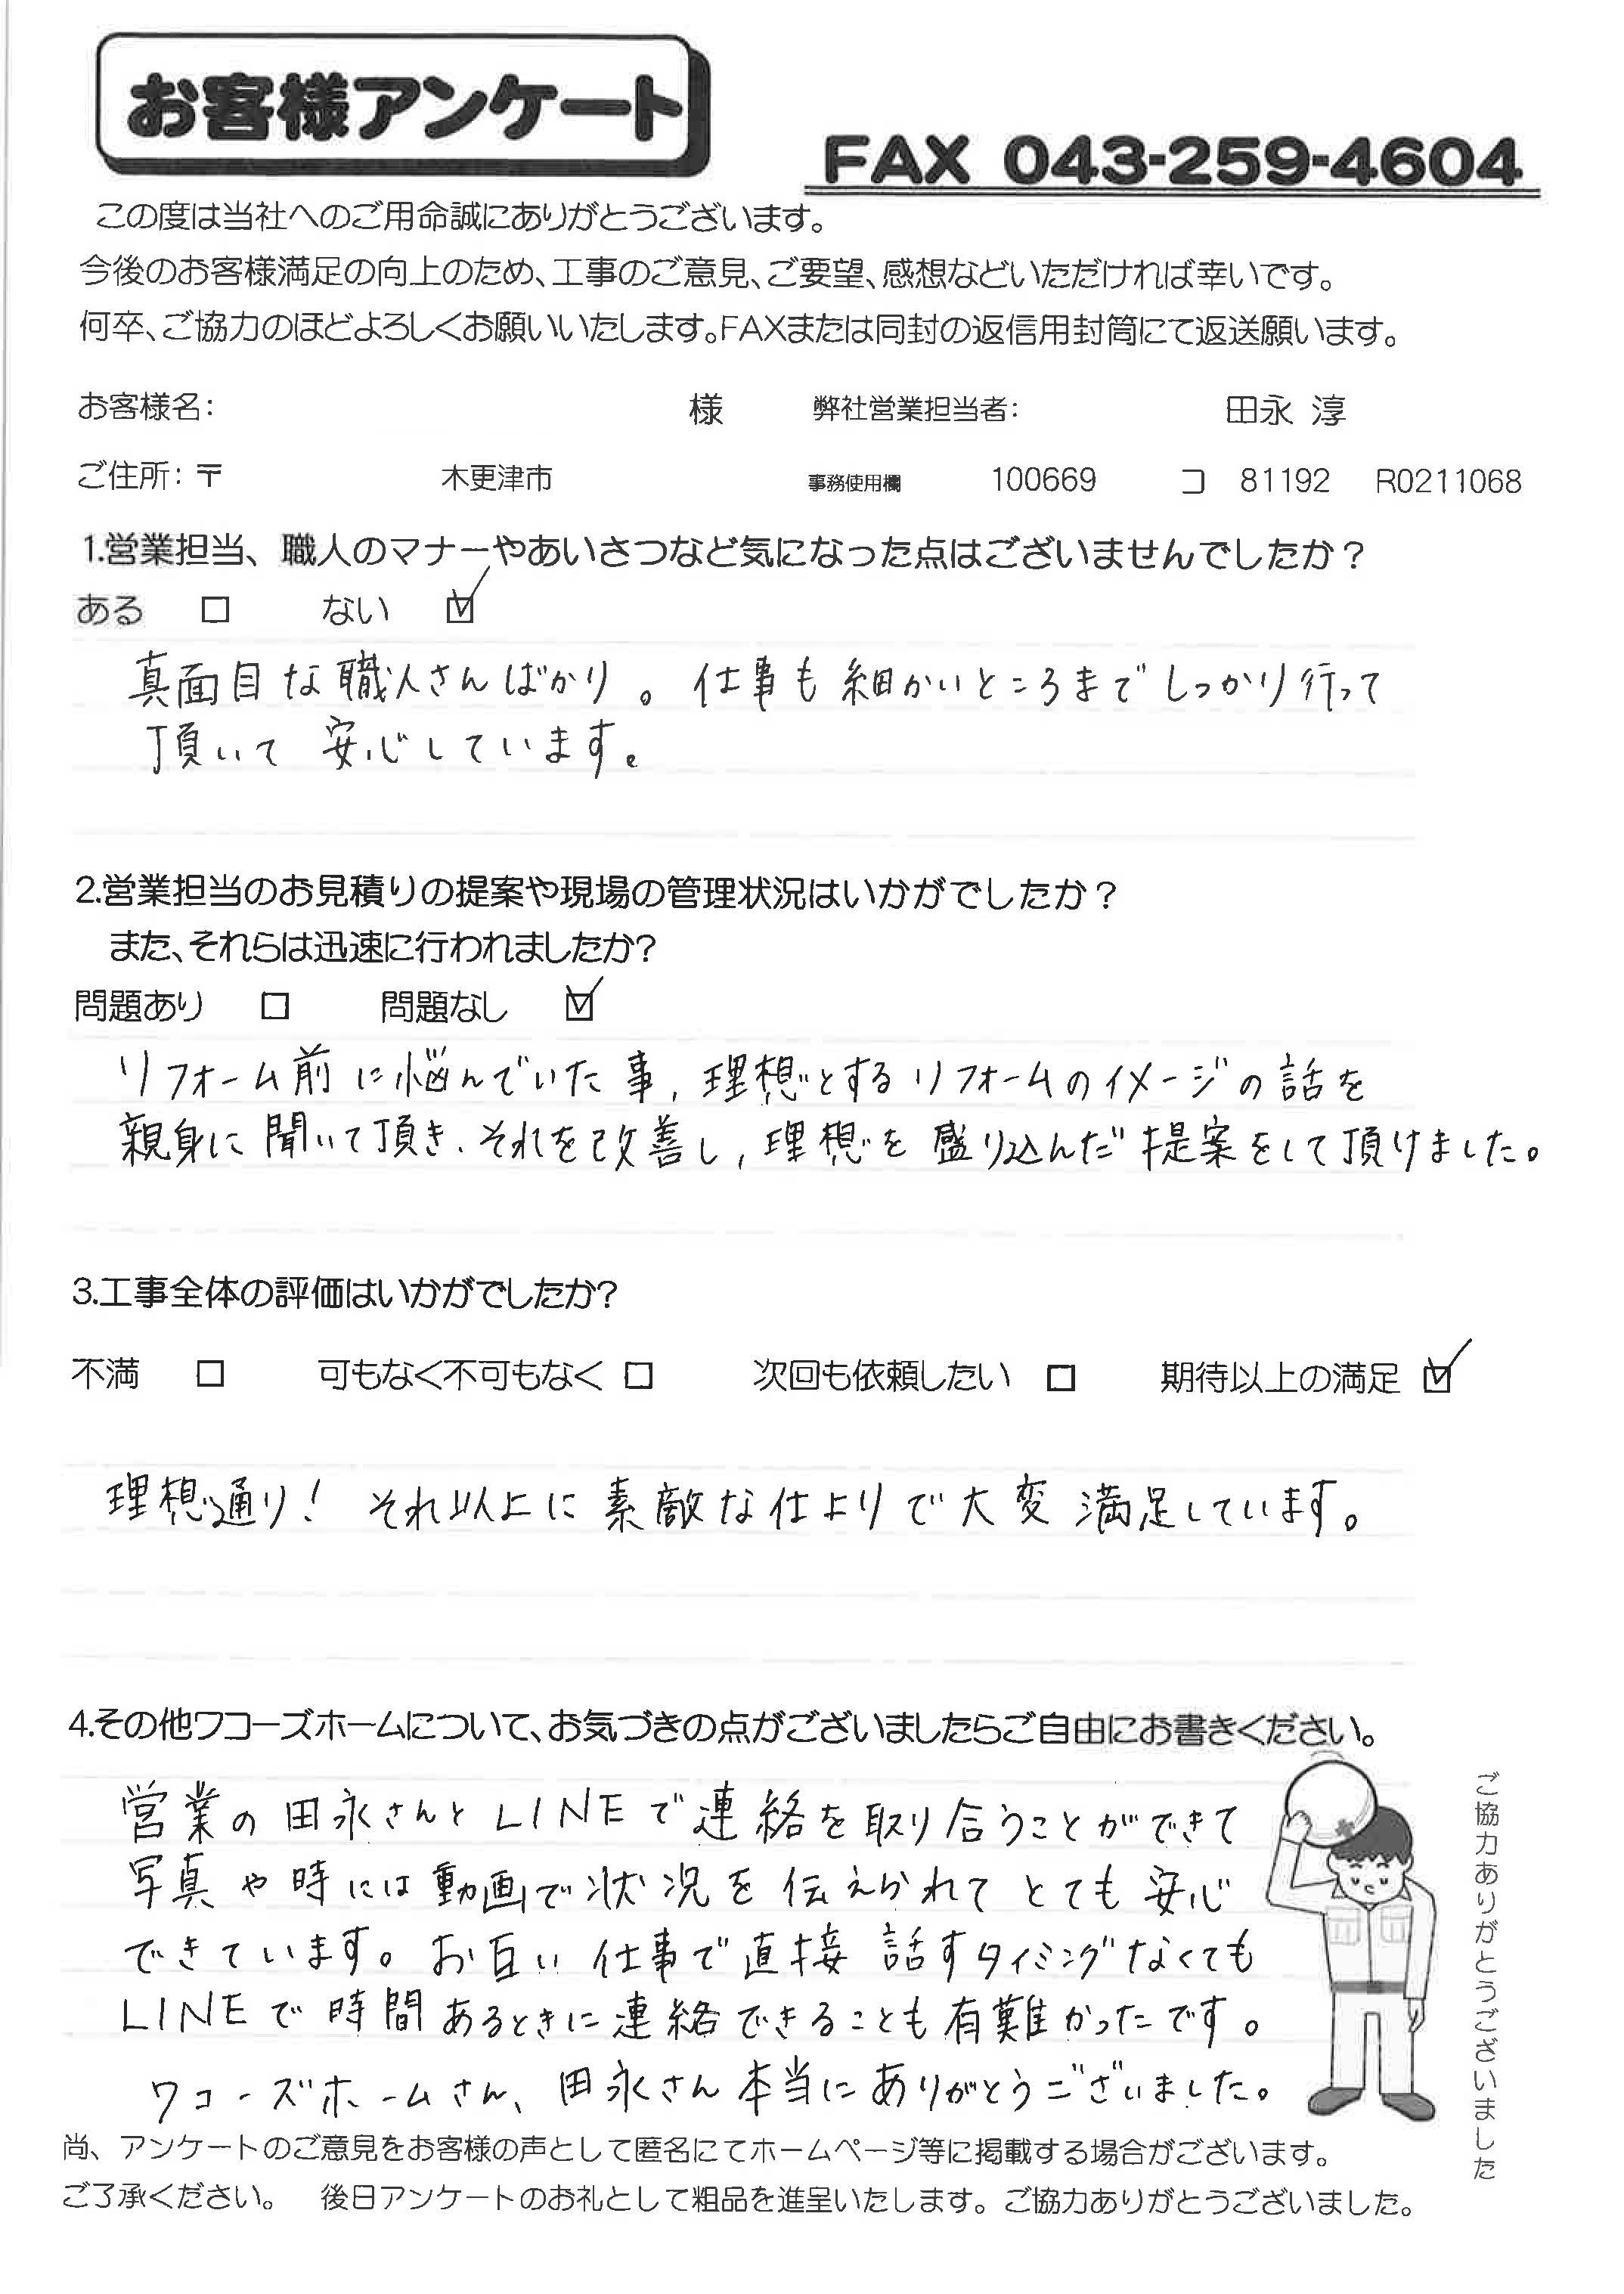 お客様アンケート
FAX 043-259-4604
この度は当社へのご用命誠にありがとうございます。
今後のお客様満足の向上のため、工事のご意見、ご要望、感想などいただければ幸いです。
何卒、ご協力のほどよろしくお願いいたします。FAXまたは同封の返信用封筒にて返送願います。
お客様名: 様 弊社営業担当者: 田永 淳
ご住所:〒 木更津市 事務使用欄 100669 コ 81192 R0211068
1.営業担当、職人のマナーやあいさつなど気になった点はございませんでしたか？
ある □ ない ☑
真面目な職人さんばかり。仕事も細かいところまでしっかり行って
頂いて 安心しています。
2.営業担当のお見積りの提案や現場の管理状況はいかがでしたか？
また、それらは迅速に行われましたか?
問題あり □ 問題なし ☑
リフォーム前に悩んでいた事、理想とするリフォームのイメージの話を
親身に聞いて頂き、それを改善し、理想を盛り込んだ提案をして頂けました。
3.工事全体の評価はいかがでしたか?
不満 □ 可もなく不可もなく □ 次回も依頼したい □ 期待以上の満足 ☑
理想通り! それ以上に素敵な仕上りで大変満足しています。
4.その他ワコーズホームについて、お気づきの点がございましたらご自由にお書きください。
営業の田永さんとLINEで連絡を取り合うことができて
写真や時には動画で状況を伝えられてとても安心
できています。お互い仕事で直接話すタイミングなくても
LINEで時間あるときに連絡できることも有難かったです。
ワコーズホームさん、田永さん本当にありがとうございました。
ご協力ありがとうございました
尚、アンケートのご意見をお客様の声として匿名にてホームページ等に掲載する場合がございます。
ご了承ください。 後日アンケートのお礼として粗品を進呈いたします。ご協力ありがとうございました。